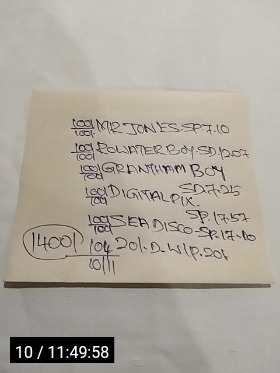 100/100 MR JONES. SP 7.10
100/100 ROWATER BOY. SD. 12.07
100/100 GRANTHAM BOY
SD. 7-25
100/100 DIGITAL PIX.
SP. 17.57
100/100 SEA DISCO-SP. 17-10
1400/ 104 20/-D-W/P. 20/
10/11
10 / 11:49:58